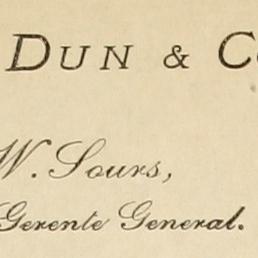 Dun & Co
W. Sours,
Gerente General.